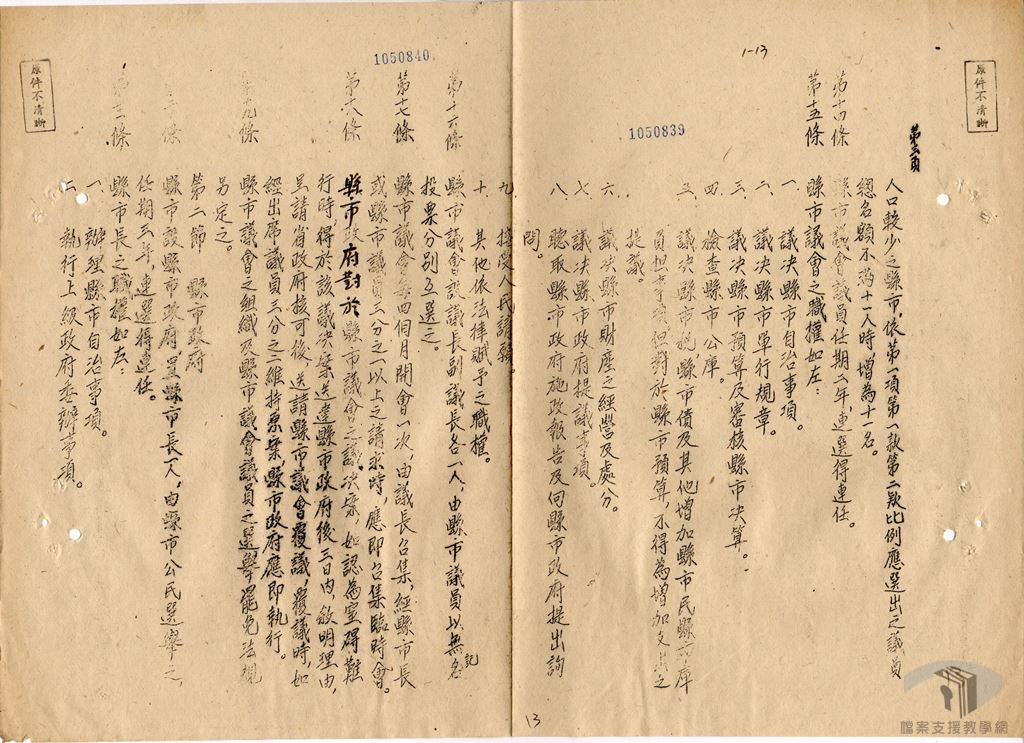 1-13
1050839
原件不清晰
第三頁
人口較少之縣市,依第一項第一款第二款比例應選出之議員
總名額不滿十一人時增為十一名。
第十四條
縣市議會議員任期二年,連選得連任。
第十五條
縣市議會之職權如左:
一、議決縣市自治事項。
二、議決縣市單行規章。
三、議決縣市預算及審核縣市決算。
四、檢查縣市公庫。
五、議決縣市稅,縣市債及其他增加縣市民縣市庫
負担事項,但對於縣市預算,不得為增加支出之
提議。
六、議決縣市財產之經營及處分。
七、議決縣市政府提議事項。
八、聽取縣市政府施政報告及向縣市政府提出詢
問。
13
1050840
原件不清晰
九、接受人民請願。
十、其他依法律賦予之職權。
第十六條
縣市議會設議長副議長各一人,由縣市議員以無記名
投票分別互選之。
第十七條
縣市議會每四個月開會一次,由議長召集,經縣市長
或縣市議員三分之一以上之請求時,應即召集臨時會。
第十八條
縣市政府對於縣市議會之議決案,如認為窒碍難
行時,得於該議決案送達縣市政府後三日內,敘明理由,
呈請省政府核可後,送請縣市議會覆議,覆議時,如
經出席議員三分之二維持原案,縣市政府應即執行。
第十九條
縣市議會之組織及縣市議會議員之選舉罷免法規
另定之。
第二節 縣市政府
條
縣市設縣市政府,置縣市長一人,由縣市公民選舉之,
任期三年,連選得連任。
條
縣市長之職權如左:
一、辦理縣市自治事項。
二、執行上級政府委辦事項。
檔案支援教學網